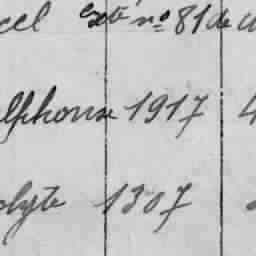 cel exté no 81 de
Alphonse 1917 4
olyte 1307